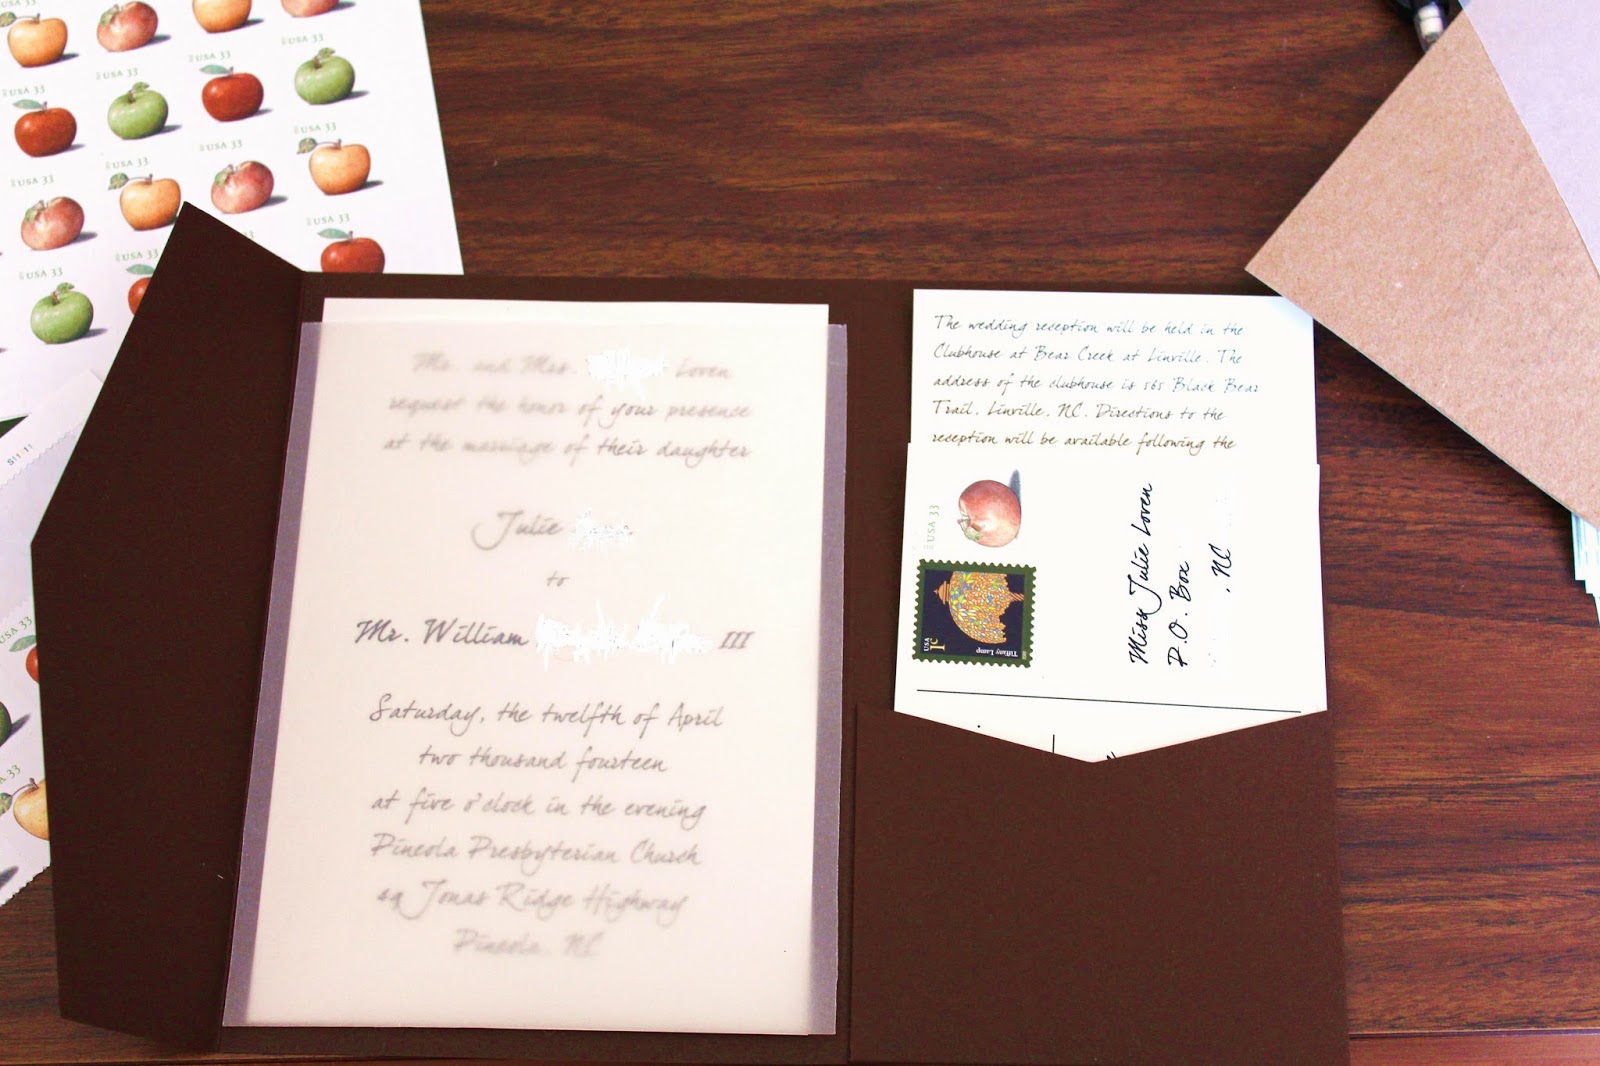 USA 33
USA 33
USA 33
USA 33
USA 33
USA 33
USA 33
USA 33
USA 33
USA 33
USA 33
USA 33
S11 11
USA 33
USA 33
Mr. and Mrs. Loven
request the honor of your presence
at the marriage of their daughter
Julie
to
Mr. William III
Saturday, the twelfth of April
two thousand fourteen
at five o'clock in the evening
Pineola Presbyterian Church
Jonas Ridge Highway
Pineola, NC
The wedding reception will be held in the
Clubhouse at Bear Creek at Linville. The
address of the clubhouse is 565 Black Bear
Trail, Linville, NC. Directions to the
reception will be available following the
USA 33
USA 1c
Tiffany Lamp
Miss Julie Loven
P.O. Box
, NC